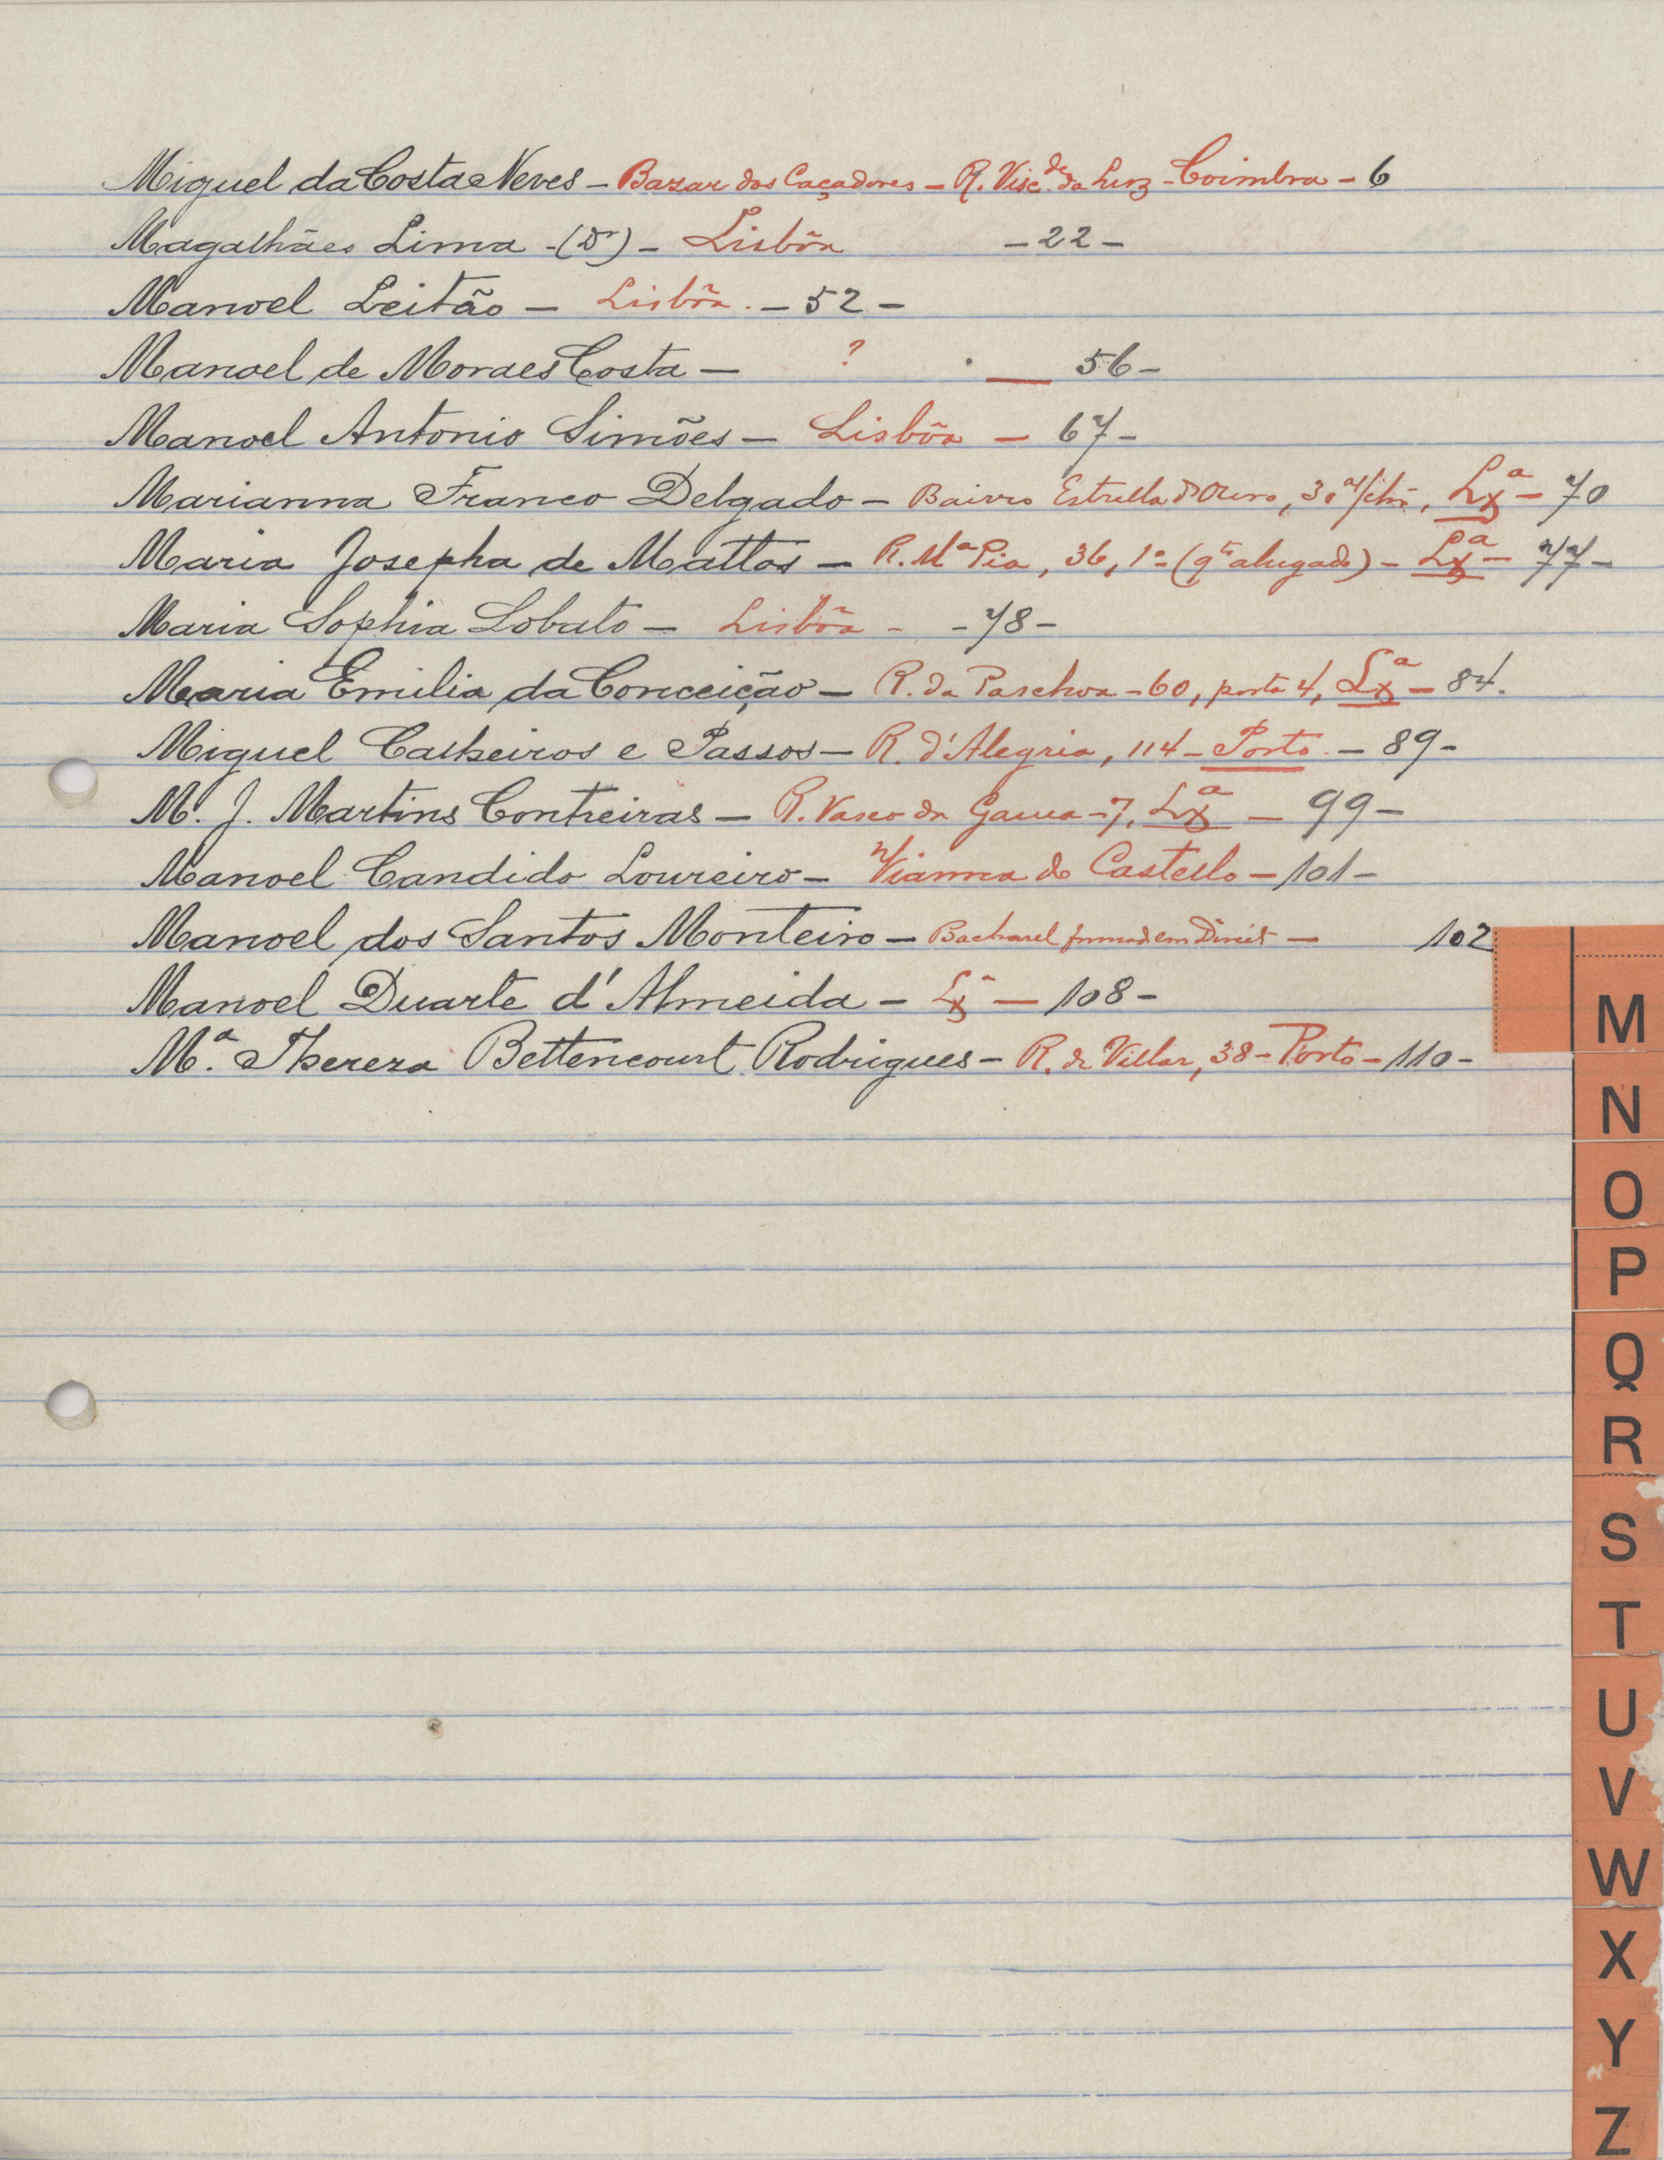 Miguel da Costa Neves – Bazar dos Caçadores – R. Visc.de da Luz – Coimbra – 6
Magalhães Lima – (Dr) – Lisbôa – 22 –
Manoel Leitão – Lisbôa – 52 –
Manoel de Moraes Costa – ? — 56 –
Manoel Antonio Simões – Lisbôa – 67 –
Marianna Franco Delgado – Bairro Estrella d'Ouro, 30 Lxª – 70
Maria Josepha de Mattos – R. Mª Pia, 36, 1º (qto alugado) – Lxª – 77 –
Maria Sophia Lobato – Lisbôa – – 78 –
Maria Emilia da Conceição – R. da Paschoa – 60, porta 4, Lxª – 84.
Miguel Calheiros e Passos – R. d'Alegria, 114 – Porto – 89 –
M. J. Martins Contreiras – R. Vasco da Gama – 7, Lxª – 99 –
Manoel Candido Loureiro – Vianna do Castello – 101 –
Manoel dos Santos Monteiro – Bacharel formado em Direito – 102
Manoel Duarte d'Almeida – Lxª — 108 –
Mª. Thereza Bettencourt Rodrigues – R. de Villar, 38 – Porto – 110 –
M
N
O
P
Q
R
S
T
U
V
W
X
Y
Z